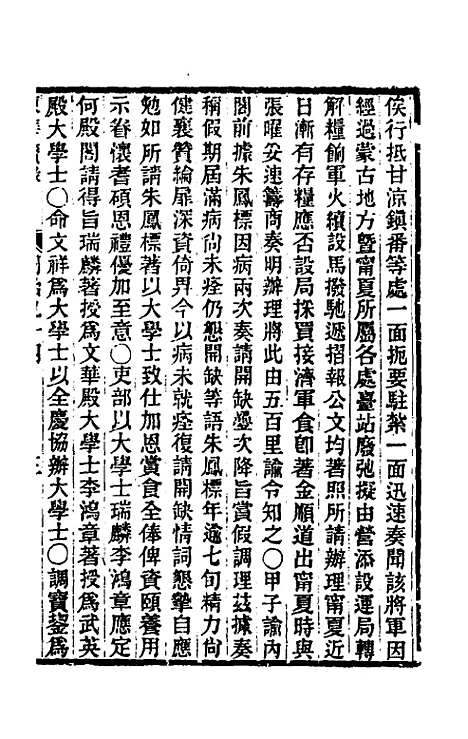 俟行抵甘涼鎮番等處一面扼要駐紮一面迅速奏聞該將軍因
經過蒙古地方暨甯夏所屬各處臺站廢弛擬由營添設運局轉
解糧餉軍火續設馬撥馳遞摺報公文均著照所請辦理甯夏近
日漸有存糧應否設局採買接濟軍食卽著金順道出甯夏時與
張曜妥速籌商奏明辦理將此由五百里諭令知之○甲子諭內
閣前據朱鳳標因病兩次奏請開缺疊次降旨賞假調理茲據奏
稱假期屆滿病尙未痊仍懇開缺等語朱鳳標年逾七旬精力尙
健襄贊綸扉深資倚畀今以病未就痊復請開缺情詞懇摯自應
勉如所請朱鳳標著以大學士致仕加恩賞食全俸俾資頤養用
示眷懷耆碩恩禮優加至意○吏部以大學士瑞麟李鴻章應定
何殿閣請得旨瑞麟著授爲文華殿大學士李鴻章著授爲武英
殿大學士○命文祥爲大學士以全慶協辦大學士○調寶鋆爲